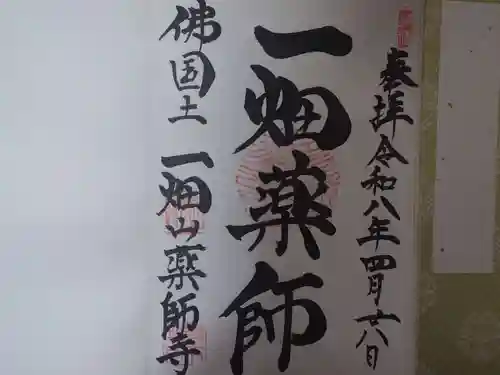 奉拝 令和八年四月十八日
一畑薬師
佛国土 一畑山薬師寺